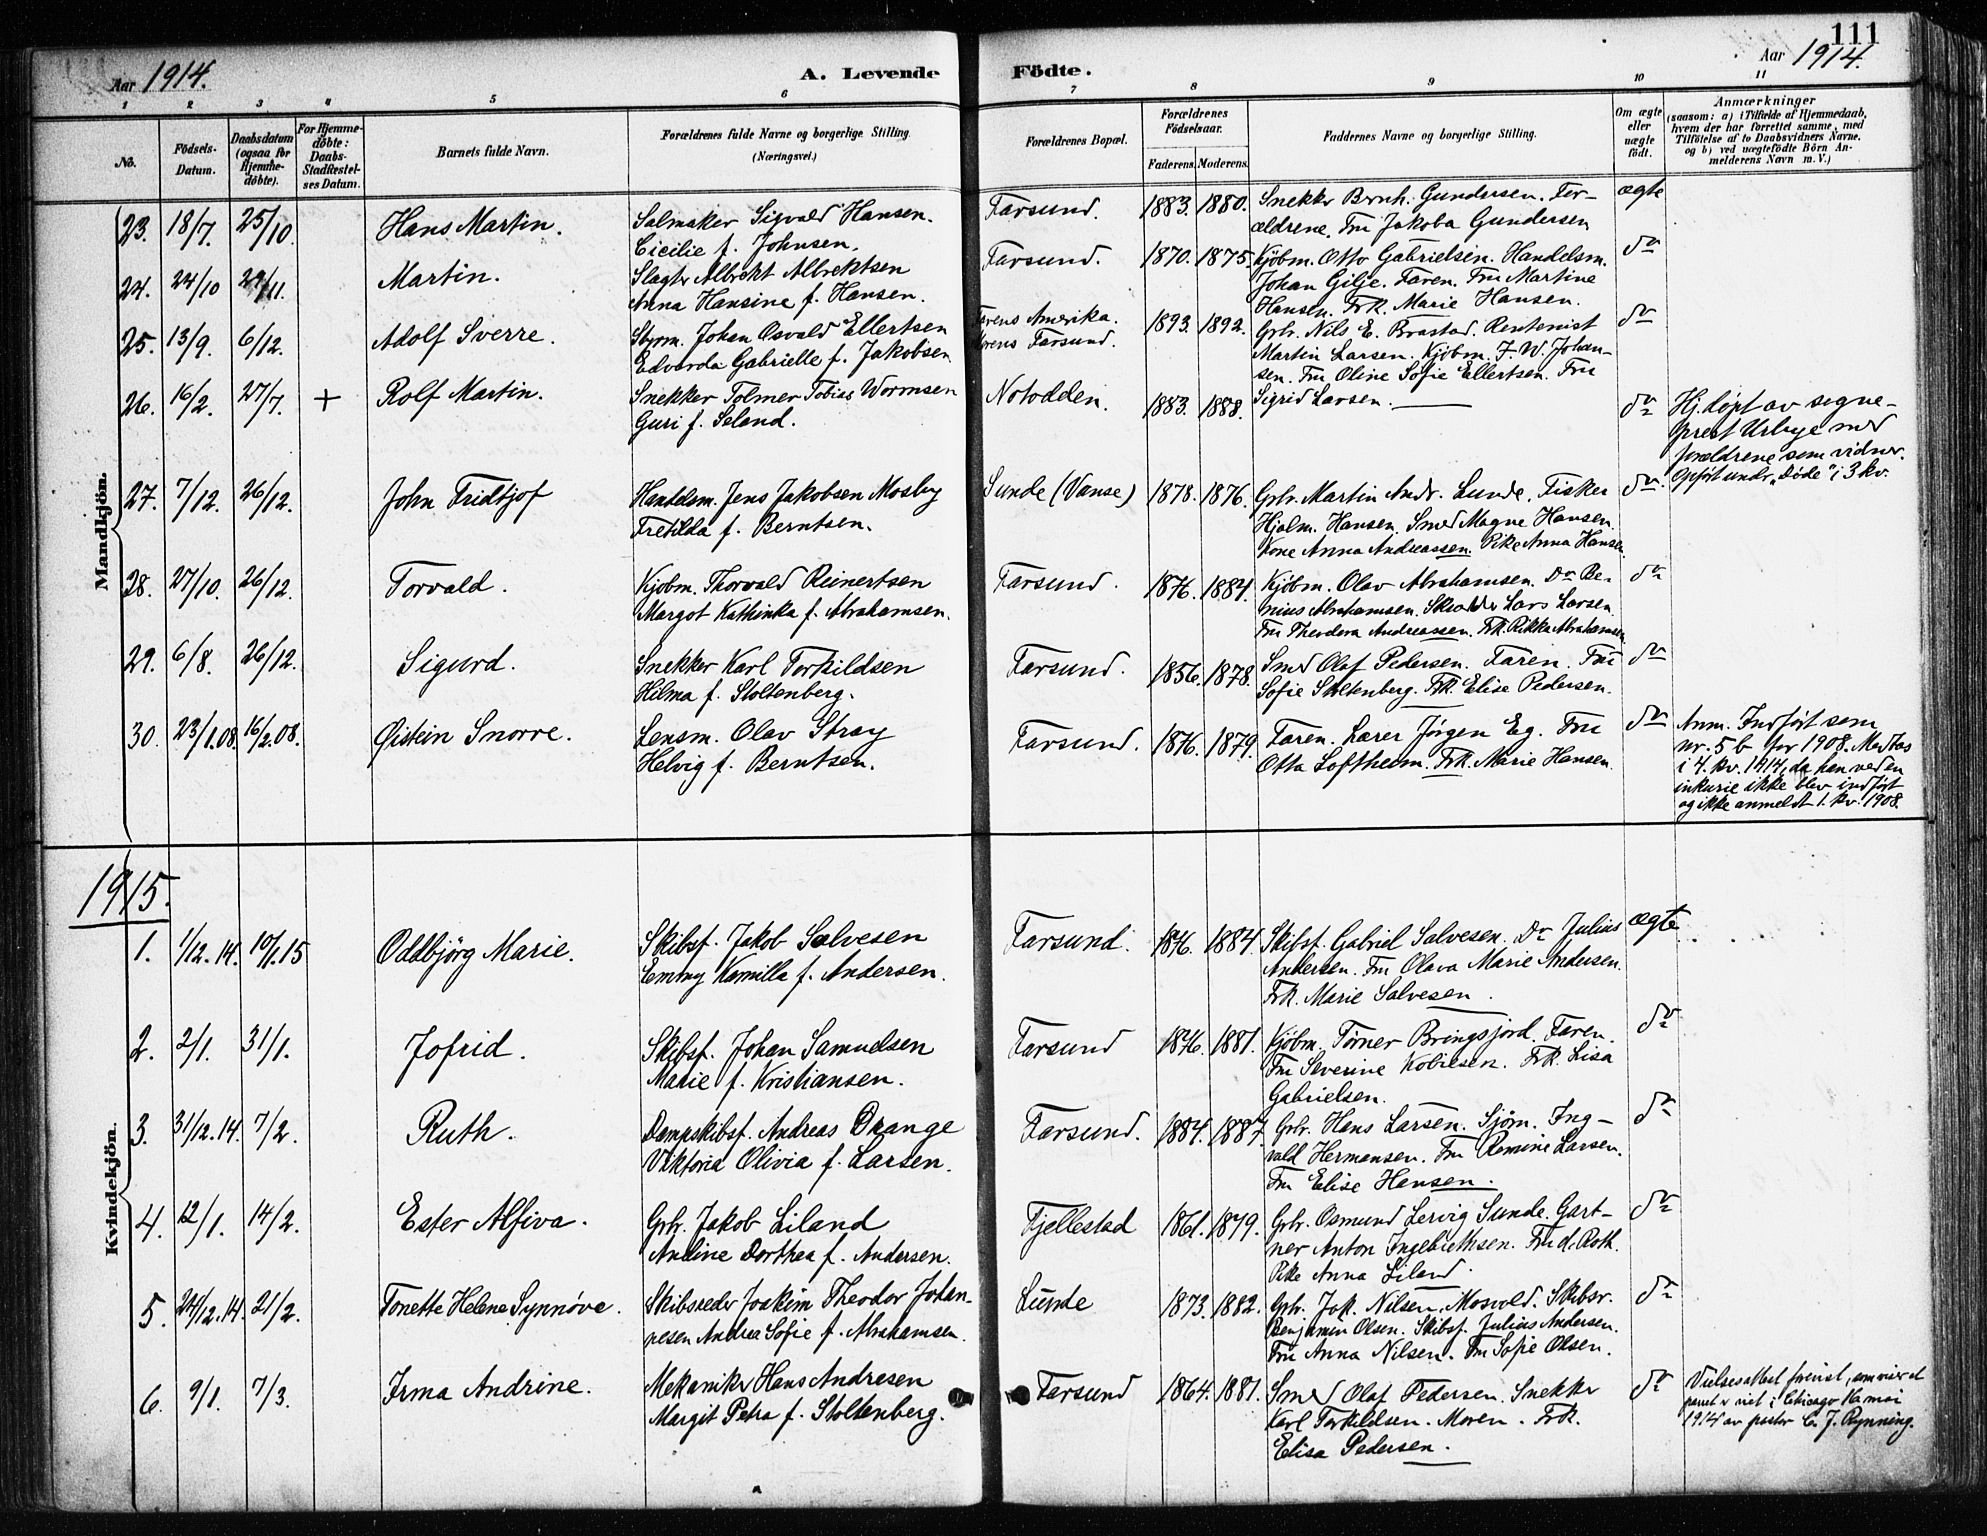 111
Aar 1914. A. Levende Födte. Aar 1914.
1 2 3 4 5 6 7 8 9 10 11
No.
Födsels-
Datum.
Daabsdatum
(ogsaa for
Hjemme-
döbte).
For Hjemme-
döbte:
Daabs-
Stadfæstel-
ses Datum.
Barnets fulde Navn.
Forældrenes fulde Navne og borgerlige Stilling.
(Næringsvei.)
Forældrenes Bopæl.
Forældrenes
Födselsaar.
Faderens. Moderens.
Faddernes Navne og borgerlige Stilling.
Om ægte
eller
uægte
födt.
Anmærkninger
(saasom: a) i Tilfælde af Hjemmedaab,
hvem der har forrettet samme, med
Tilföielse af to Daabsvidners Navne.
og b) ved uægtefödte Börn An-
melderens Navn m. V.)
Mandkjön.
23. 18/7 25/10 Hans Martin. Salmaker Sigvald Hansen.
Cicilie f. Johnsen.
Farsund. 1883. 1880. Snekker Brnh. Gundersen. For-
ældrene. Fru Jakoba Gundersen
ægte
24. 24/10 29/11. Martin. Slagter Albrekt Albrektsen
Anna Hansine f. Hansen.
Farsund. 1870. 1875. Kjöbm. Otto Gabrielsen. Handelsm.
Johan Gilje. Faren. Fru Martine
Hansen. Frk. Marie Hansen.
do
25. 13/9. 6/12. Adolf Sverre. Styrm. Johan Osvald Ellertsen
Edvarda Gabrielle f. Jakobsen
Farens Amerika.
Morens Farsund.
1893. 1892. Grbr. Nils E. Brastad. Rentenist
Martin Larsen. Kjöbm. J. W. Johan-
sen. Fru Oline Sofie Ellertsen. Fru
Sigrid Larsen.
do
26. 16/2. 27/7. + Rolf Martin. Snekker Tolmer Tobias Wormsen
Guri f. Seland.
Notodden. 1883. 1888. do
Hj.döpt av sogne-
prest Urbye med
forældrene som vidner.
Opført under "Døde" i 3 kv.
27. 7/12. 26/12. John Fridtjof Handelsm. Jens Jakobsen Mosby
Fretilda f. Berntsen.
Sunde (Vanse) 1878. 1876. Grbr. Martin Andr. Lunde. Fisker
Hjalm. Hansen. Smed Magne Hansen.
Kone Anna Andreassen. Pike Anna Hansen.
do
28. 27/10. 26/12. Torvald. Kjöbm. Thorvald Reinertsen
Margot Kathinka f. Abrahamsen.
Farsund. 1876. 1884. Kjöbm. Olav Abrahamsen. Do Be-
nius Abrahamsen. Lars Larsen
Fru Theodora Andreassen. Frk. Rikka Abrahamsen
do
29. 6/8. 26/12. Sigurd. Snekker Karl Torkildsen
Hilma f. Stoltenberg.
Farsund. 1856. 1878. Smed Olaf Pedersen. Faren. Fru
Sofie Stoltenberg. Frk. Elise Pedersen.
do
30. 23/1.08. 16/2.08. Øistein Snorre. Lensm. Olav Stray
Helvig f. Berntsen.
Farsund. 1876. 1879. Faren. Lærer Jörgen Eg. Fru
Otta Loftheim. Frk. Marie Hansen.
do
Anm. Indført som
nr. 5 b for 1908. Medtas
i 4. kv. 1914, da han ved en
inkurie ikke blev indført
og ikke anmeldt 1. kv. 1908.
1915.
Kvindekjön.
1. 1/12.14. 10/1.15 Oddbjörg Marie. Skibsf. Jakob Salvesen
Emmy Kamilla f. Andersen.
Farsund. 1876. 1884. Skibsf. Gabriel Salvesen. Do Julius
Andersen. Fru Olava Marie Andersen.
Frk. Marie Salvesen.
ægte
2. 2/1. 31/1. Jofrid. Skibsf. Johan Samuelsen
Marie f. Kristiansen.
Farsund 1876. 1881. Kjöbm. Törner Bringsjord. Faren.
Fru Severine Kobielsen. Frk. Lisa
Gabrielsen.
do
3. 31/12.14. 7/2. Ruth. Dampskibsf. Andreas Orange
Viktoria Olivia f. Larsen.
Farsund. 1884. 1887. Grbr. Hans Larsen. Sjöm. Ing-
vald Hermansen. Fru Romine Larsen.
Fru Elise Hansen.
do
4. 12/1. 14/2. Ester Alfiva. Grbr. Jakob Liland
Andine Dorthea f. Andersen.
Fjellestad 1861. 1879. Grbr. Osmund Lervig Sunde. Gart-
ner Anton Ingebrethsen. Fru d. Roth.
Pike Anna Liland.
do
5. 24/12.14. 21/2. Tonette Helene Synnøve. Skibsreder Joakim Theodor Johan-
nesen Andrea Sofie f. Abrahamsen.
Lunde 1873. 1882. Grbr. Jak. Nilsen, Mosvold. Skibsr.
Benjamin Olsen. Skibsf. Julius Andersen.
Fru Anna Nilsen. Fru Sofie Olsen.
do
6. 9/1. 7/3. Irma Andrine. Mekaniker Hans Andresen
Margit Petra f. Stoltenberg.
Farsund 1864. 1881. Smed Olaf Pedersen. Snekker
Karl Torkildsen. Moren. Frk.
Elisa Pedersen.
do
Vielsesattest forevist, som viser at
paret er viet i Chicago mai
1914 av pastor C. J. Rynning.